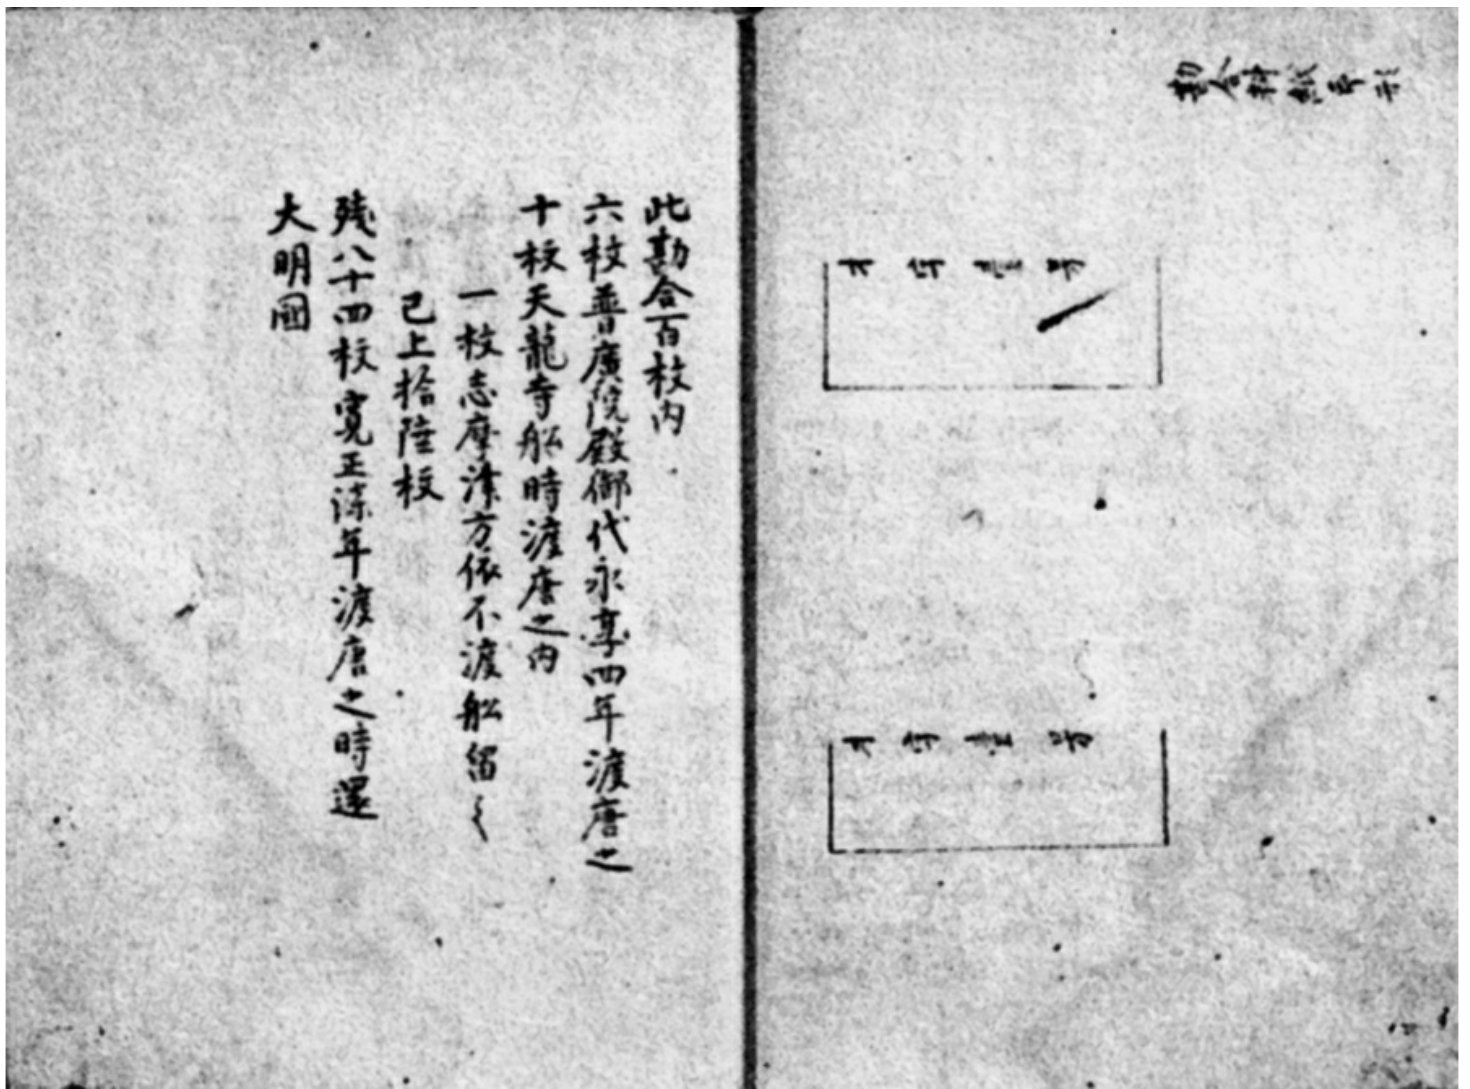 勘合料紙印形
此勘合百枚内
六枚普廣院殿御代永享四年渡唐之
十枚天龍寺舩時渡唐之内
一枚志摩津方依不渡舩留之
已上拾陸枚
残八十四枚寛正年渡唐之時還
大明國